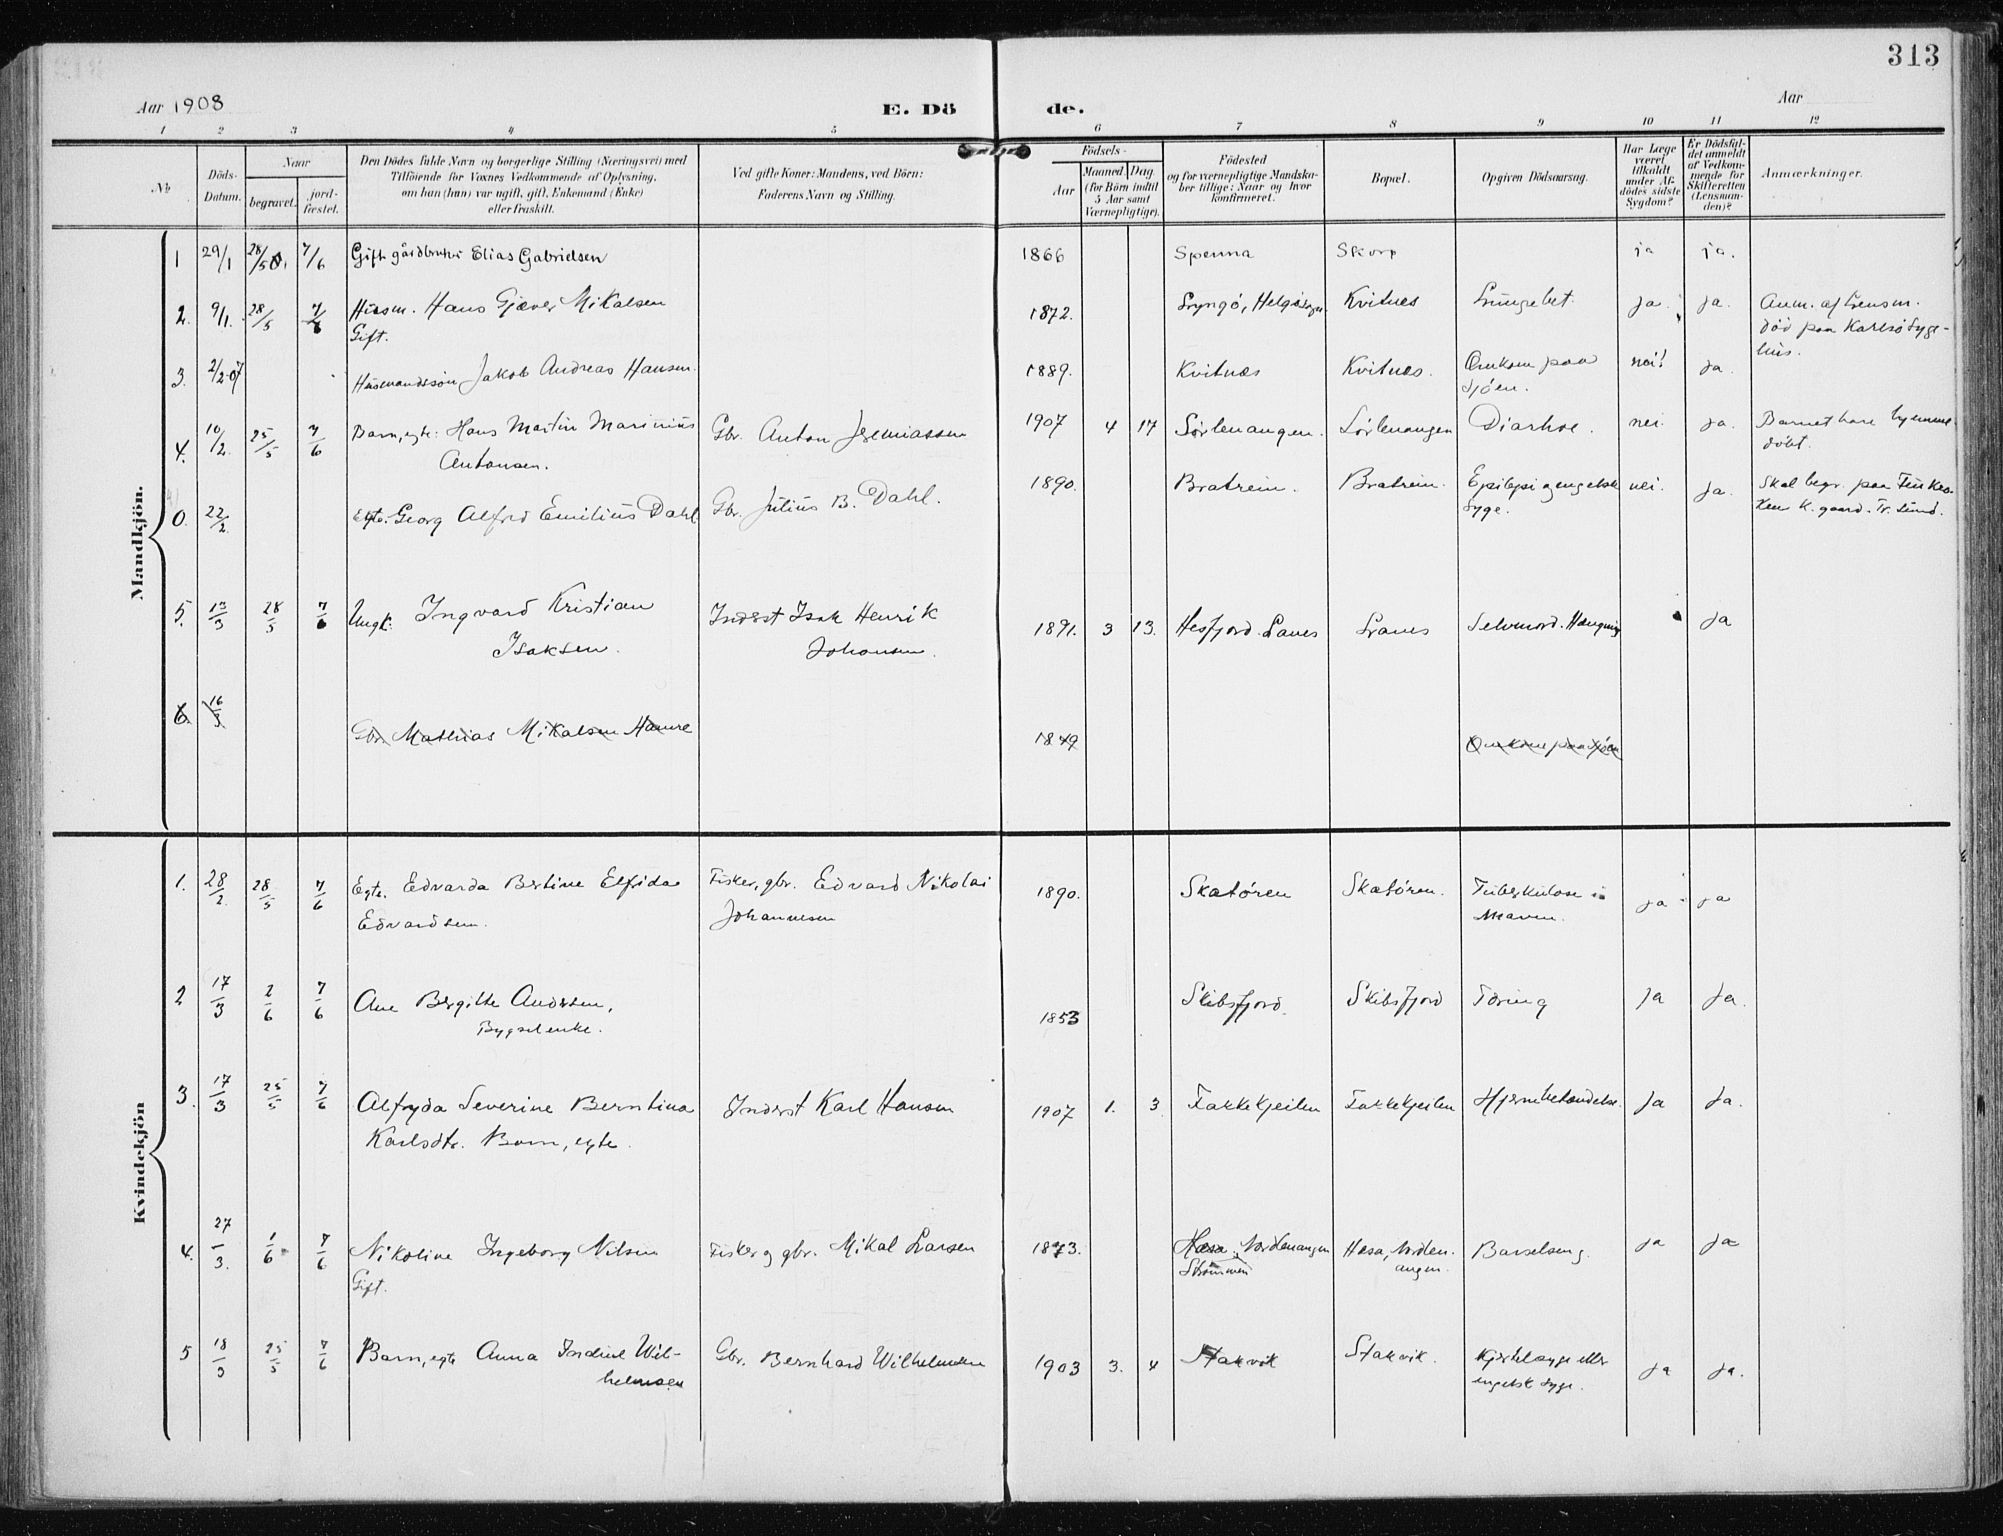 313
Aar 1908
E. Dö de.
Aar
1 2 3 4 5 6 7 8 9 10 11 12
No
Döds-Datum.
Naar
begravet.
jord-fæstet.
Den Dödes fulde Navn og borgerlige Stilling (Næringsvei) med
Tilföiende for Voxnes Vedkommende af Oplysning,
om han (hun) var ugift, gift, Enkemand (Enke)
eller fraskilt.
Ved gifte Koner: Mandens, ved Börn:
Faderens Navn og Stilling.
Födsels-
Aar
Maaned. Dag
(for Börn indtil
5 Aar samt
Værnepligtige).
Födested
og for værnepligtige Mandska-
ber tillige: Naar og hvor
konfirmeret.
Bopæl.
Opgiven Dödsaarsag.
Har Læge
været
tilkaldt
under Af-
dödes sidste
Sygdom?
Er Dödsfal-
det anmeldt
af Vedkom-
mende for
Skifteretten
(Lensman-
den)?
Anmærkninger.
Mandkjön.
1 29/1 28/5 7/6 Gift gårdbruker Elias Gabrielsen 1866 Spenna Skorp ja ja.
2. 9/1. 28/5 7/6 Husm. Hans Gjæver Mikalsen 1872. Lyngö, Helgö sogn Kvitnes Lungebet. ja. ja. Anm. af Lensm.
Gift. död paa Karlsö Syge-
hus.
3. 2/2-07 Husmandssön Jakob Andreas Hansen. 1889. Kvitnæs Kvitnæs. Omkom paa nei! ja.
Sjöen.
4. 10/2 25/5 7/6 Barn, egte: Hans Martin Marinius Gbr. Anton Jeremiassen 1907 4 17 Sörlenangen. Sörlenangen Diarhoe. nei. ja. Barnet bare hjemme-
Antonsen. döbt.
0. 22/2 egte. Georg Alfred Emilius Dahl Gbr. Julius B. Dahl. 1890. Bratrein. Bratrein. Epilepsi og engelsk nei. ja. Skal begr. paa Finkro-
Syge. ken K. gaard. Tr. Sund.
5. 13/3 28/5 7/6 Ungk. Ingvard Kristian Inderst Isak Henrik 1891. 3 13. Hesfjord. Lanes Lanes Selvmord. Hængning ja
Isaksen. Johansen.
6. 16/3 Gbr. Mathias Mikalsen Hamre 1849 Omkom paa Sjöen
Kvindekjön
1. 28/2 28/5 7/6 Egte. Edvarda Bertine Elfrida Fisker, gbr. Edvard Nikolai 1890. Skatören Skatören. Tuberkulose i ja ja
Edvardsen. Johannesen Maven.
2 17/3 2/6 7/6 Ane Bergitte Andersen, 1853 Skibsfjord. Skibsfjord Tæring ja ja.
Bygselenke.
3. 17/3 25/5 7/6 Alfryda Severine Berntina Inderst Karl Hansen 1907 1. 3 Fakkekjeilen Fakkekjeilen Hjernebetændelse. ja ja.
Karlsdtr. Barn, egte.
4. 27/3. 1/6 7/6 Nikoline Ingeborg Nilsen Fisker og gbr. Mikal Larsen 1873. Hæsa. Nordenangen Hæsa, Norden- Barselseng. ja ja
Gift. Strømmen angen.
5 18/3 25/5 7/6 Barn, egte Anna Indine Wil- Gbr. Bernhard Wilhelmsen 1903 3. 4 Stakvik Stakvik. Kjertelsyge eller ja ja.
helmsen engelsk syge.